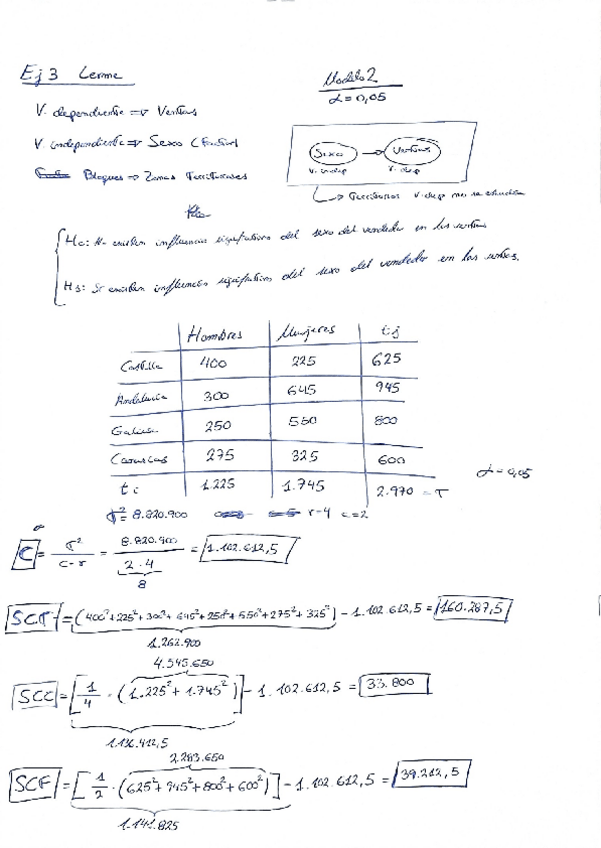 Ej 3 Lerma
Modelo 2
α = 0,05
V. dependiente => Ventas
V. independiente => Sexo (Factor)
Bloques => Zonas Territoriales
Sexo → Ventas
V. indep V. dep
Territorios V. dep
Ho: No existen influencias significativas del sexo del vendedor en las ventas
H1: Si existen influencias significativas del sexo del vendedor en las ventas.
Hombres Mujeres tj
Castilla 400 225 625
Andalucía 300 645 945
Galicia 250 550 800
Canarias 275 325 600
ti 1.225 1.745 2.970 = T
α = 0,05
T² = 8.820.900 r=4 c=2
C = T² / c·r = 8.820.900 / 2·4 = 1.102.612,5
8
SCT = (400²+225²+300²+645²+250²+550²+275²+325²) - 1.102.612,5 = 160.287,5
1.262.900
4.545.650
SCC = [1/4 · (1.225² + 1.745²)] - 1.102.612,5 = 33.800
1.136.412,5
2.283.650
SCF = [1/2 · (625² + 945² + 800² + 600²)] - 1.102.612,5 = 39.212,5
1.141.825